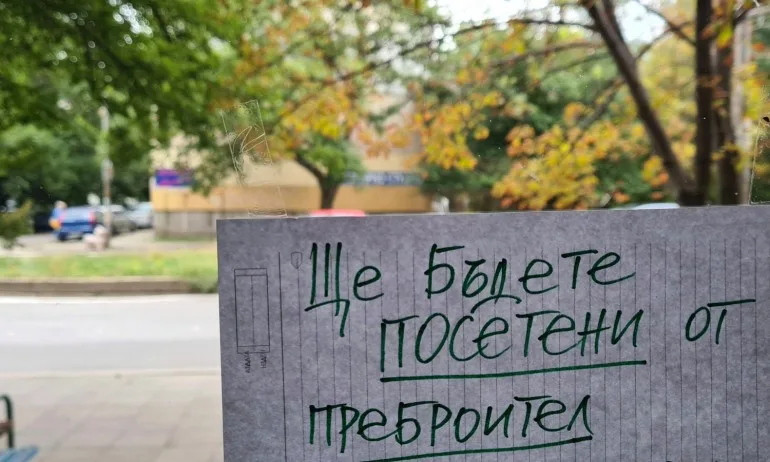 Ще Бъдете
ПОСЕТЕНИ от
преброител